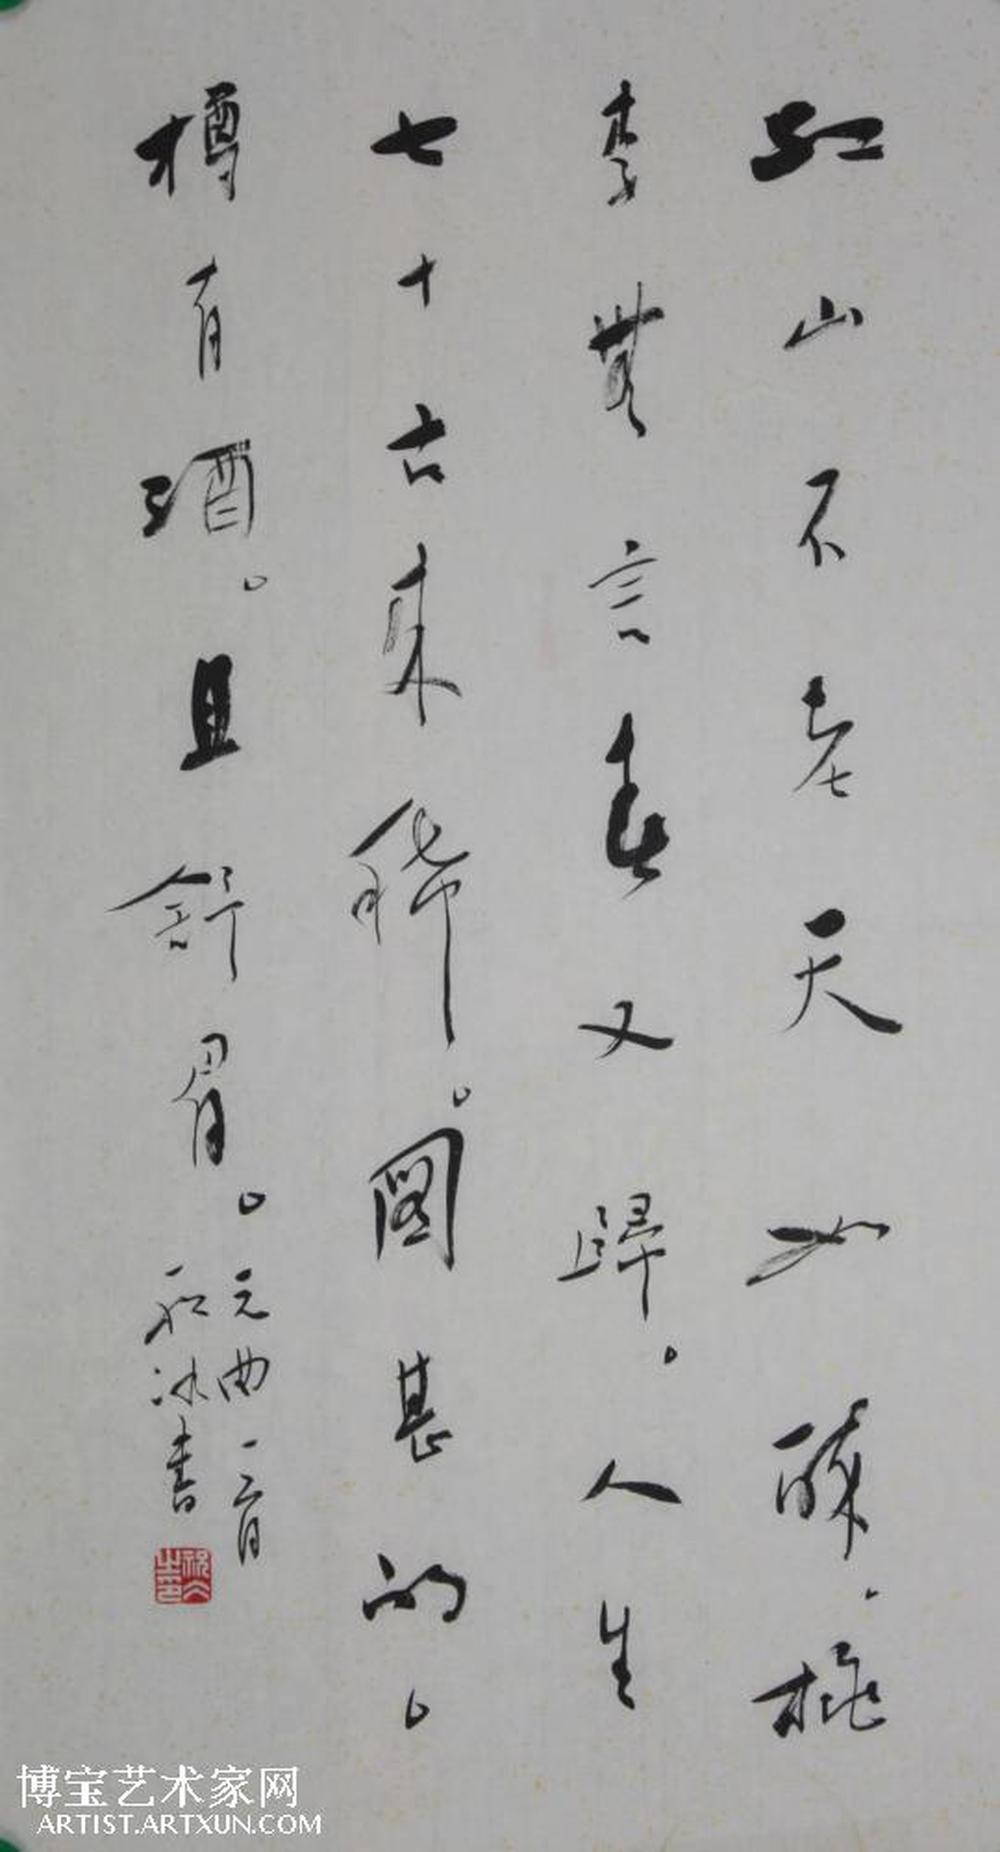 江山不老天如醉，桃
李無言春又歸。人生
七十古來稀。圖甚的。
樽有酒。且舒眉。
元曲一首
冰書
博宝艺术家网
ARTIST.ARTXUN.COM